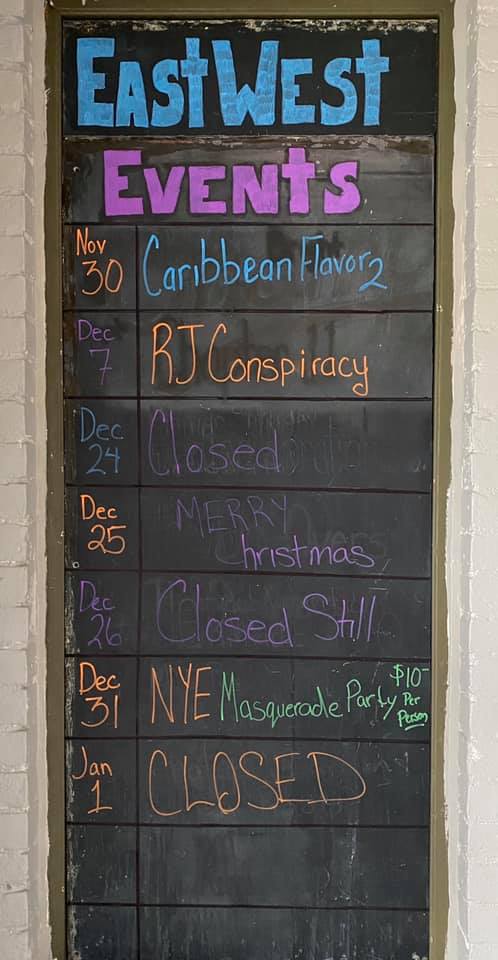 EastWest
Events
Nov 30 Caribbean Flavor2
Dec 7 RJ Conspiracy
Dec 24 Closed
Dec 25 MERRY Christmas
Dec 26 Closed Still
Dec 31 NYE Masquerade Party $10- Per Person
Jan 1 CLOSED